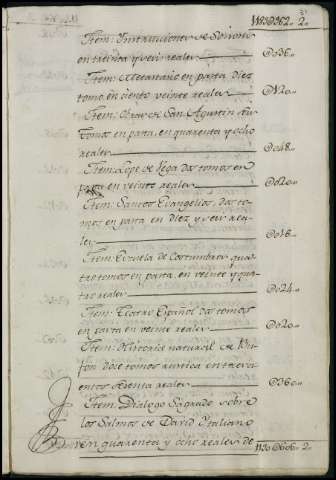 2.
Item: Instrucciones de Señori
en treinta y seis reales — Ɵo36„
Item: Mecanario en pasta diez
tomos en ciento veinte reales — Ɵ120„
Item: Obras de San Agustin
tomos en pasta, en quarenta y ocho
reales — Ɵo48„
Item: Lope de Vega dos tomos en
pasta en veinte reales — Ɵo20„
Item: Santos Evangelios, dos to
mos en pasta en diez y seis rea
les — Ɵo16„
Item: Escuela de Costumbres, qua
tro tomos en pasta, en veinte y qua
tro reales — Ɵo24„
Item: Teatro Español dos tomos
en pasta en veinte reales — Ɵo20„
Item: Historia natural de Buf
fon doce tomos rustica en trescientos
sesenta reales — Ɵ360„
Item: Dialogo Sagrado sobre
los Salmos de David Ytaliano
en quarenta y ocho reales de